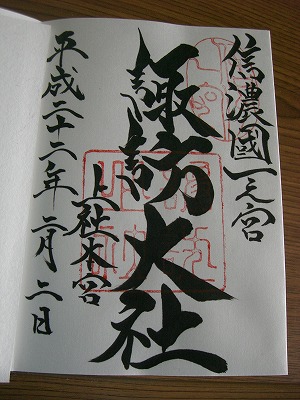 信濃國一之宮
諏訪大社
上社本宮
平成二十二年二月二日